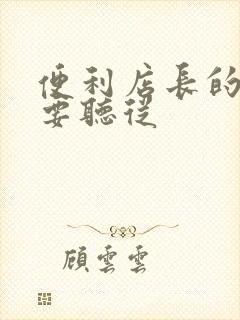 便利店長的
要聽從
顧雲雲